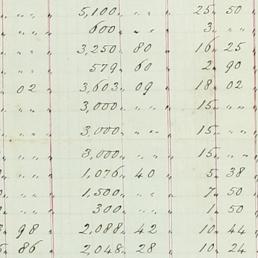 „ „ „ 5,100„ „ „ 25„ 50
„ „ „ 600„ „ „ 3„ „ „
„ „ „ 3,250„ 80 16„ 25
„ „ „ 579„ 60 2„ 90
„ 02 3,603„ 09 18„ 02
„ „ „ 3,000„ „ „ 15„ „ „
„ „ „ 3,000„ „ „ 15„ „ „
„ „ „ 3,000„ „ „ 15„ „ „
„ „ „ 1,076„ 40 5„ 38
„ „ „ 1,500„ „ „ 7„ 50
„ „ „ 300„ „ „ 1„ 50
„ 98 2,088„ 42 10„ 44
„ 86 2,048„ 28 10„ 24